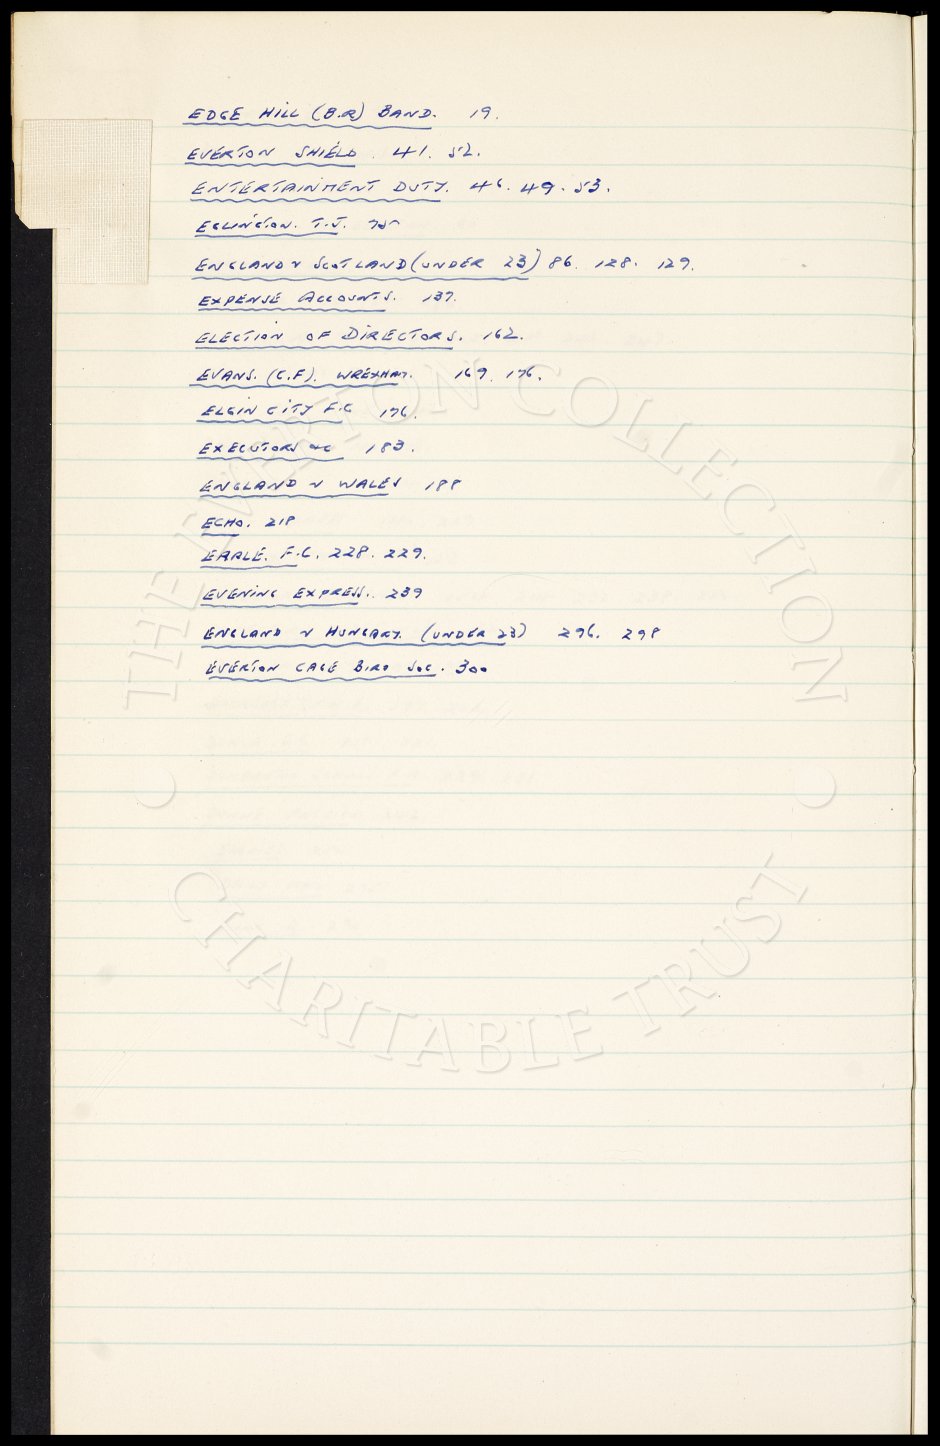 EDGE HILL (B.R) BAND. 19.
EVERTON SHIELD. 41. 52.
ENTERTAINMENT DUTY. 46. 49. 53.
EGLINGTON. T.J. 75
ENGLAND v SCOTLAND (UNDER 23) 86. 128. 129.
EXPENSE ACCOUNTS. 137.
ELECTION OF DIRECTORS. 162.
EVANS. (C.F). WREXHAM. 169. 176.
ELGIN CITY F.C 176.
EXECUTORS &c 183.
ENGLAND v WALES 188
ECHO. 218
EARLE. F.C. 228. 229.
EVENING EXPRESS. 239
ENGLAND v HUNGARY. (UNDER 23) 296. 298
EVERTON CAGE BIRD SOC. 300
THE EVERTON COLLECTION
CHARITABLE TRUST